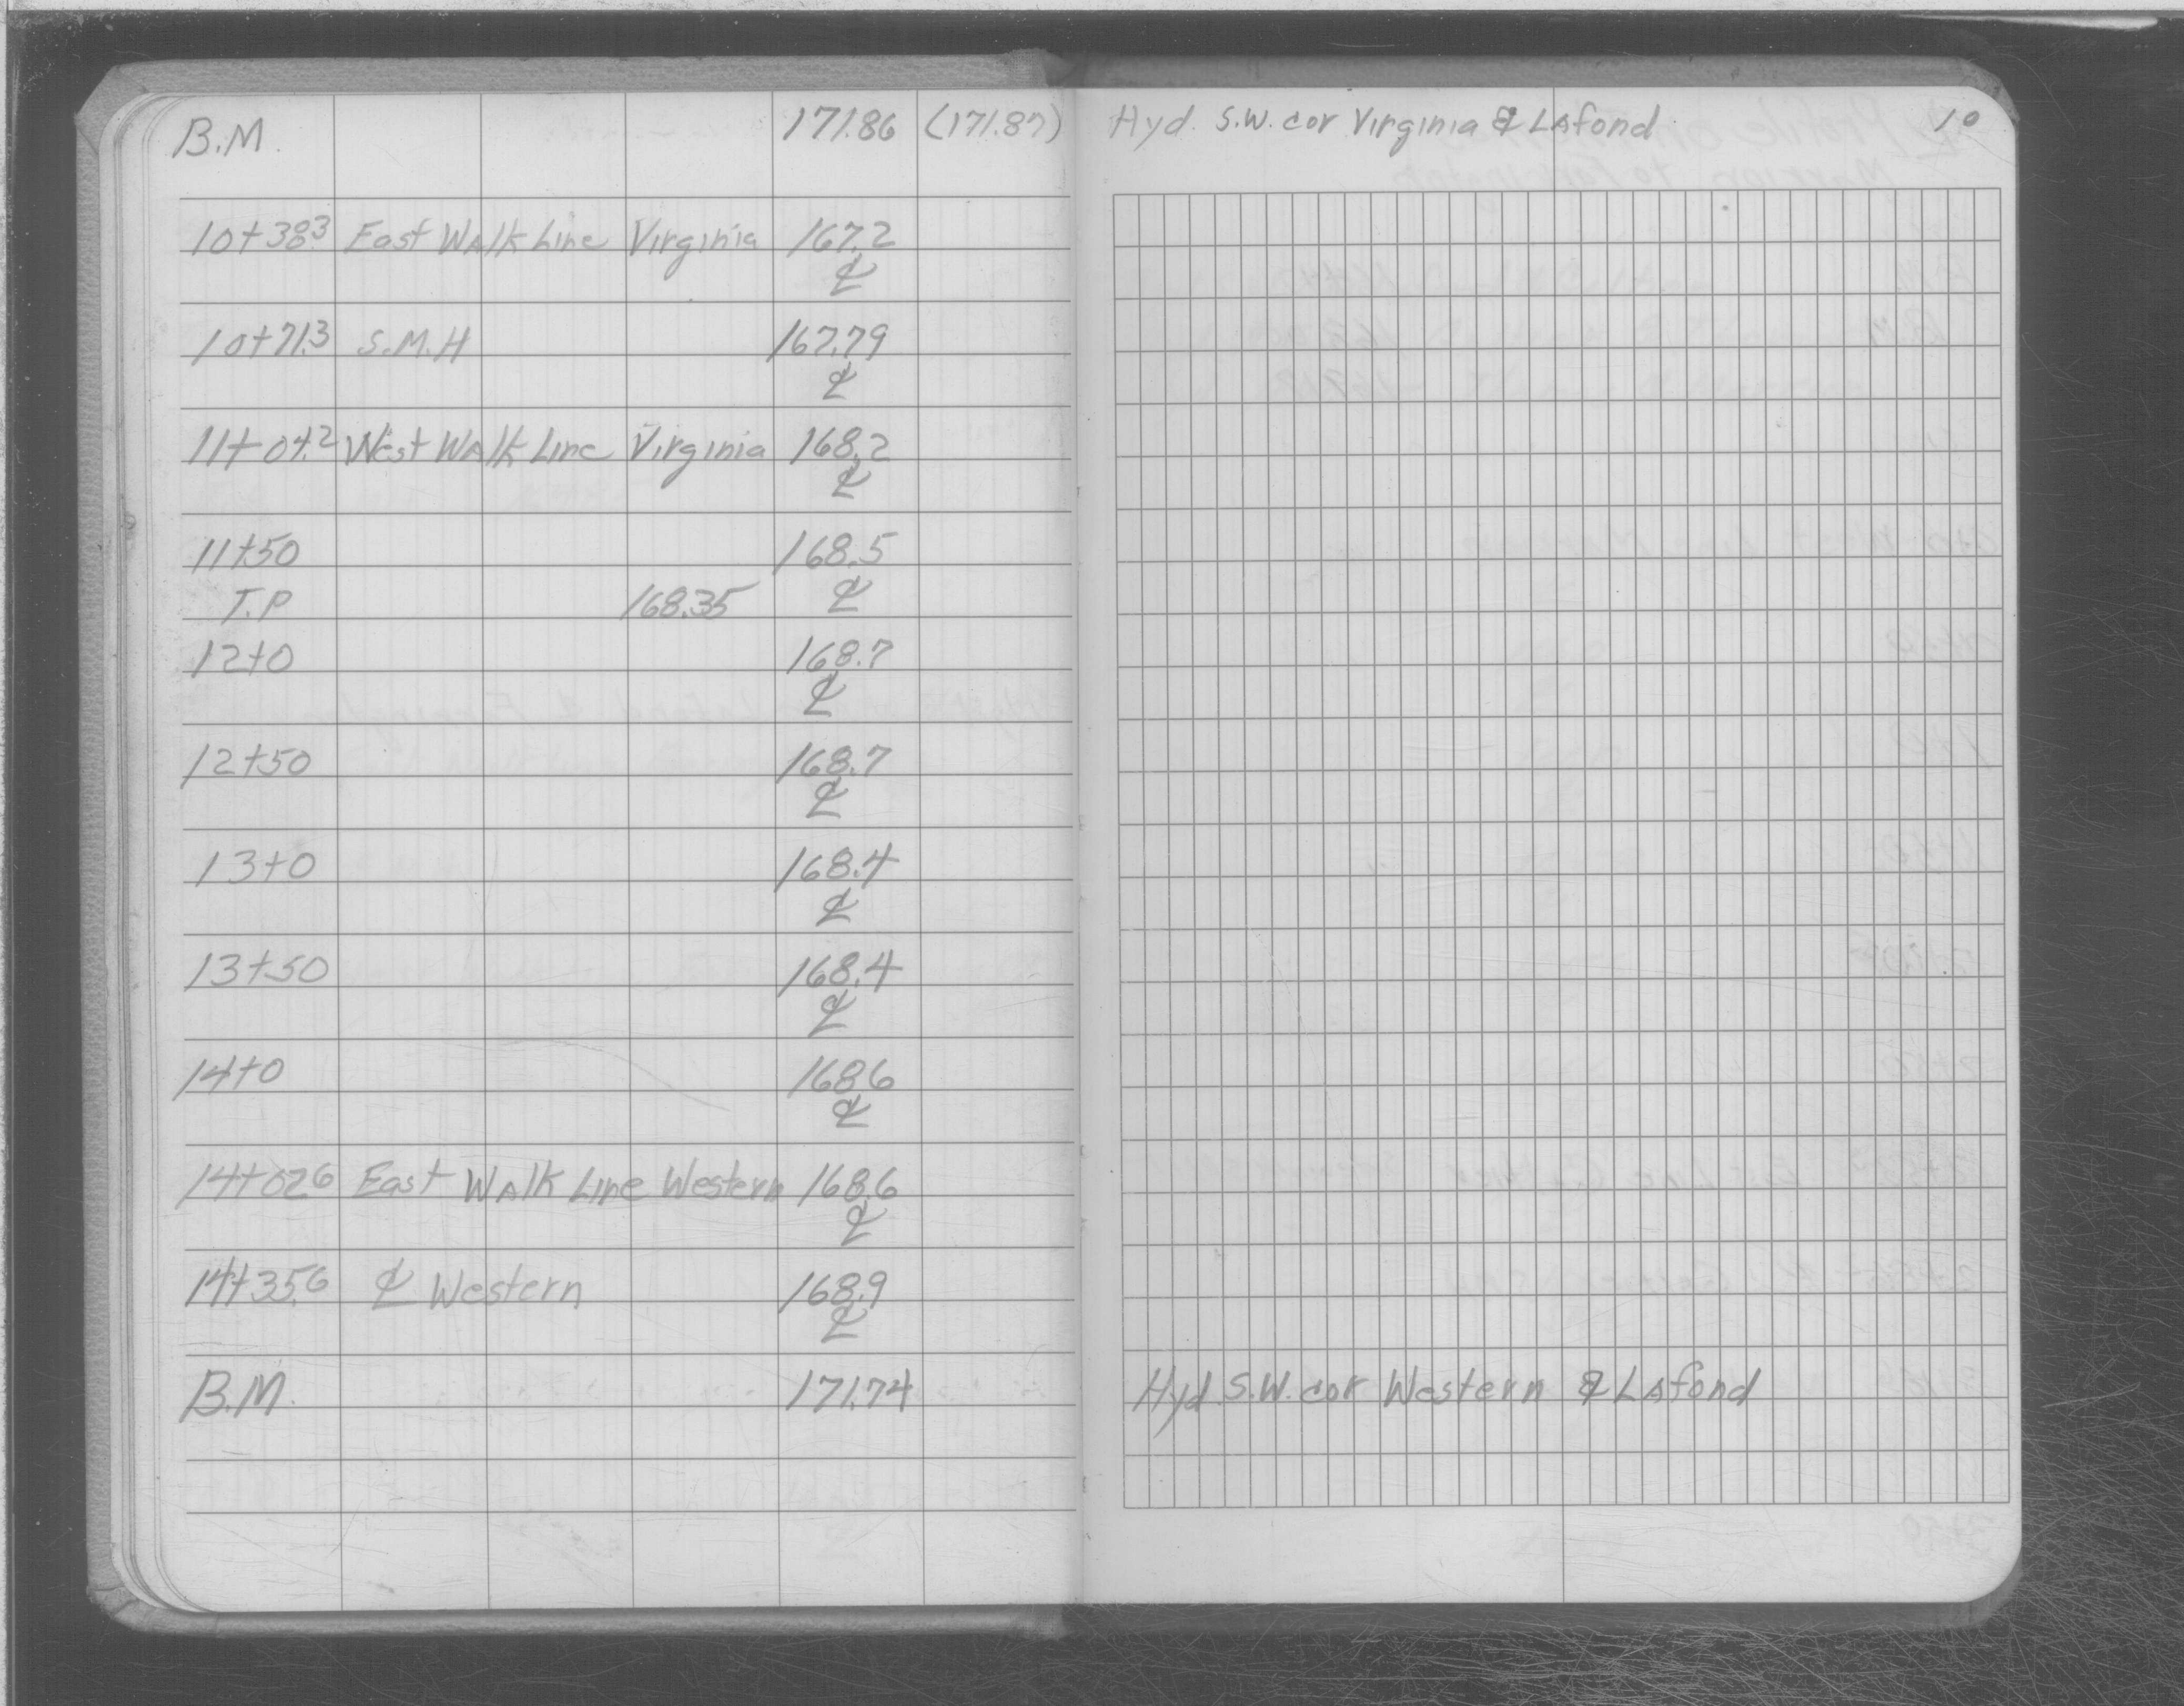 B.M. 171.86 (171.87) Hyd. S.W. cor Virginia & Lafond 10
10+38.3 East Walk Line Virginia 167.2
℄
10+71.3 S.M.H 167.79
℄
11+04.2 West Walk Line Virginia 168.2
℄
11+50 168.5
T.P 168.35 ℄
12+0 168.7
℄
12+50 168.7
℄
13+0 168.4
℄
13+50 168.4
℄
14+0 168.6
℄
14+02.6 East Walk Line Western 168.6
℄
14+35.6 ℄ Western 168.9
℄
B.M. 171.74 Hyd. S.W. cor Western & Lafond